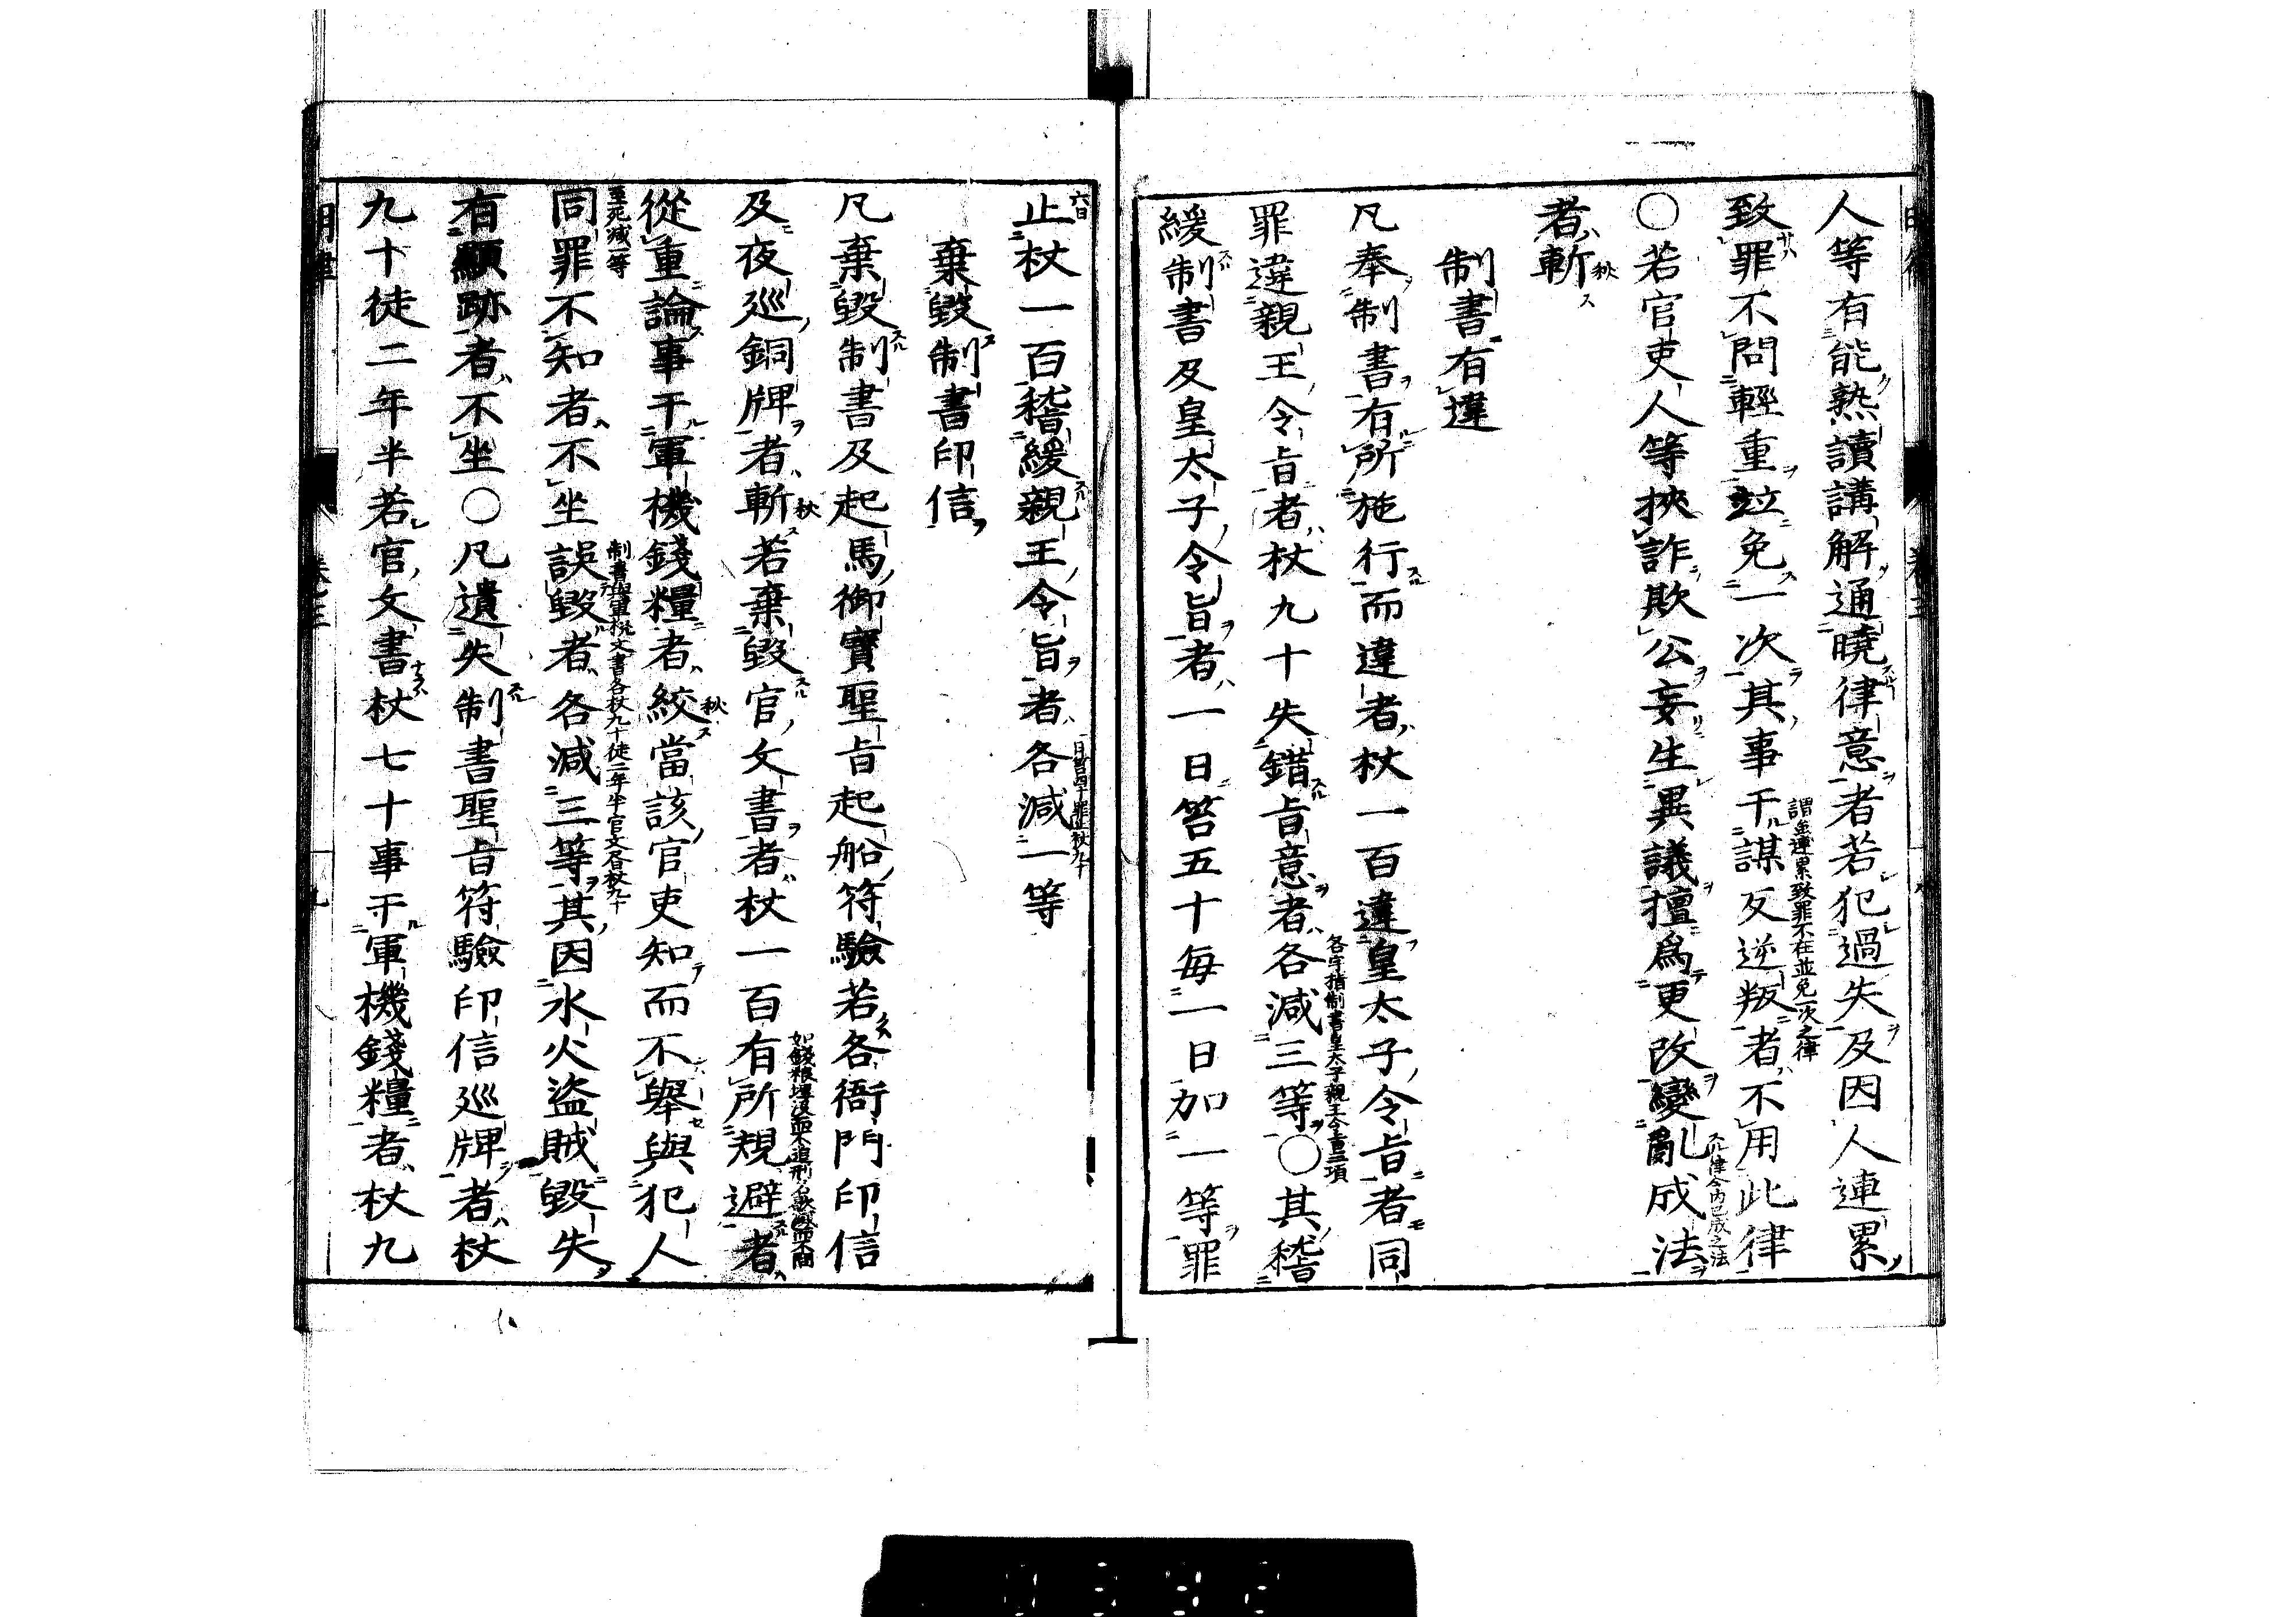 人等有能熟讀講解通曉律意者若犯過失及因人連累
致罪不問輕重竝免一次其事干謀反逆叛者不用此律
謂並連累致罪不在並免一次之律
〇若官吏人等挾詐欺公妄生異議擅爲更改變亂成法
律令內已成之法
者斬
秋
制書有違
凡奉制書有所施行而違者杖一百違皇太子令旨者同
罪違親王令旨者杖九十失錯旨意者各減三等〇其稽
各字指制書皇太子親王令旨三項
緩制書及皇太子令旨者一日笞五十每一日加一等罪
止杖一百稽緩親王令旨者各減一等
六日
一日笞四十罪止杖九十
棄毀制書印信
凡棄毀制書及起馬御寶聖旨起船符驗若各衙門印信
及夜巡銅牌者斬若棄毀官文書者杖一百有所規避者
秋
從重論事干軍機錢糧者絞當該官吏知而不舉與犯人
秋
同罪不知者不坐誤毀者各減三等其因水火盜賊毀失
至死減一等
制書軍機文書各杖九十徒二年半官文書杖九十
有顯跡者不坐〇凡遺失制書聖旨符驗印信巡牌者杖
九十徒二年半若官文書杖七十事干軍機錢糧者杖九
明律
卷三
九